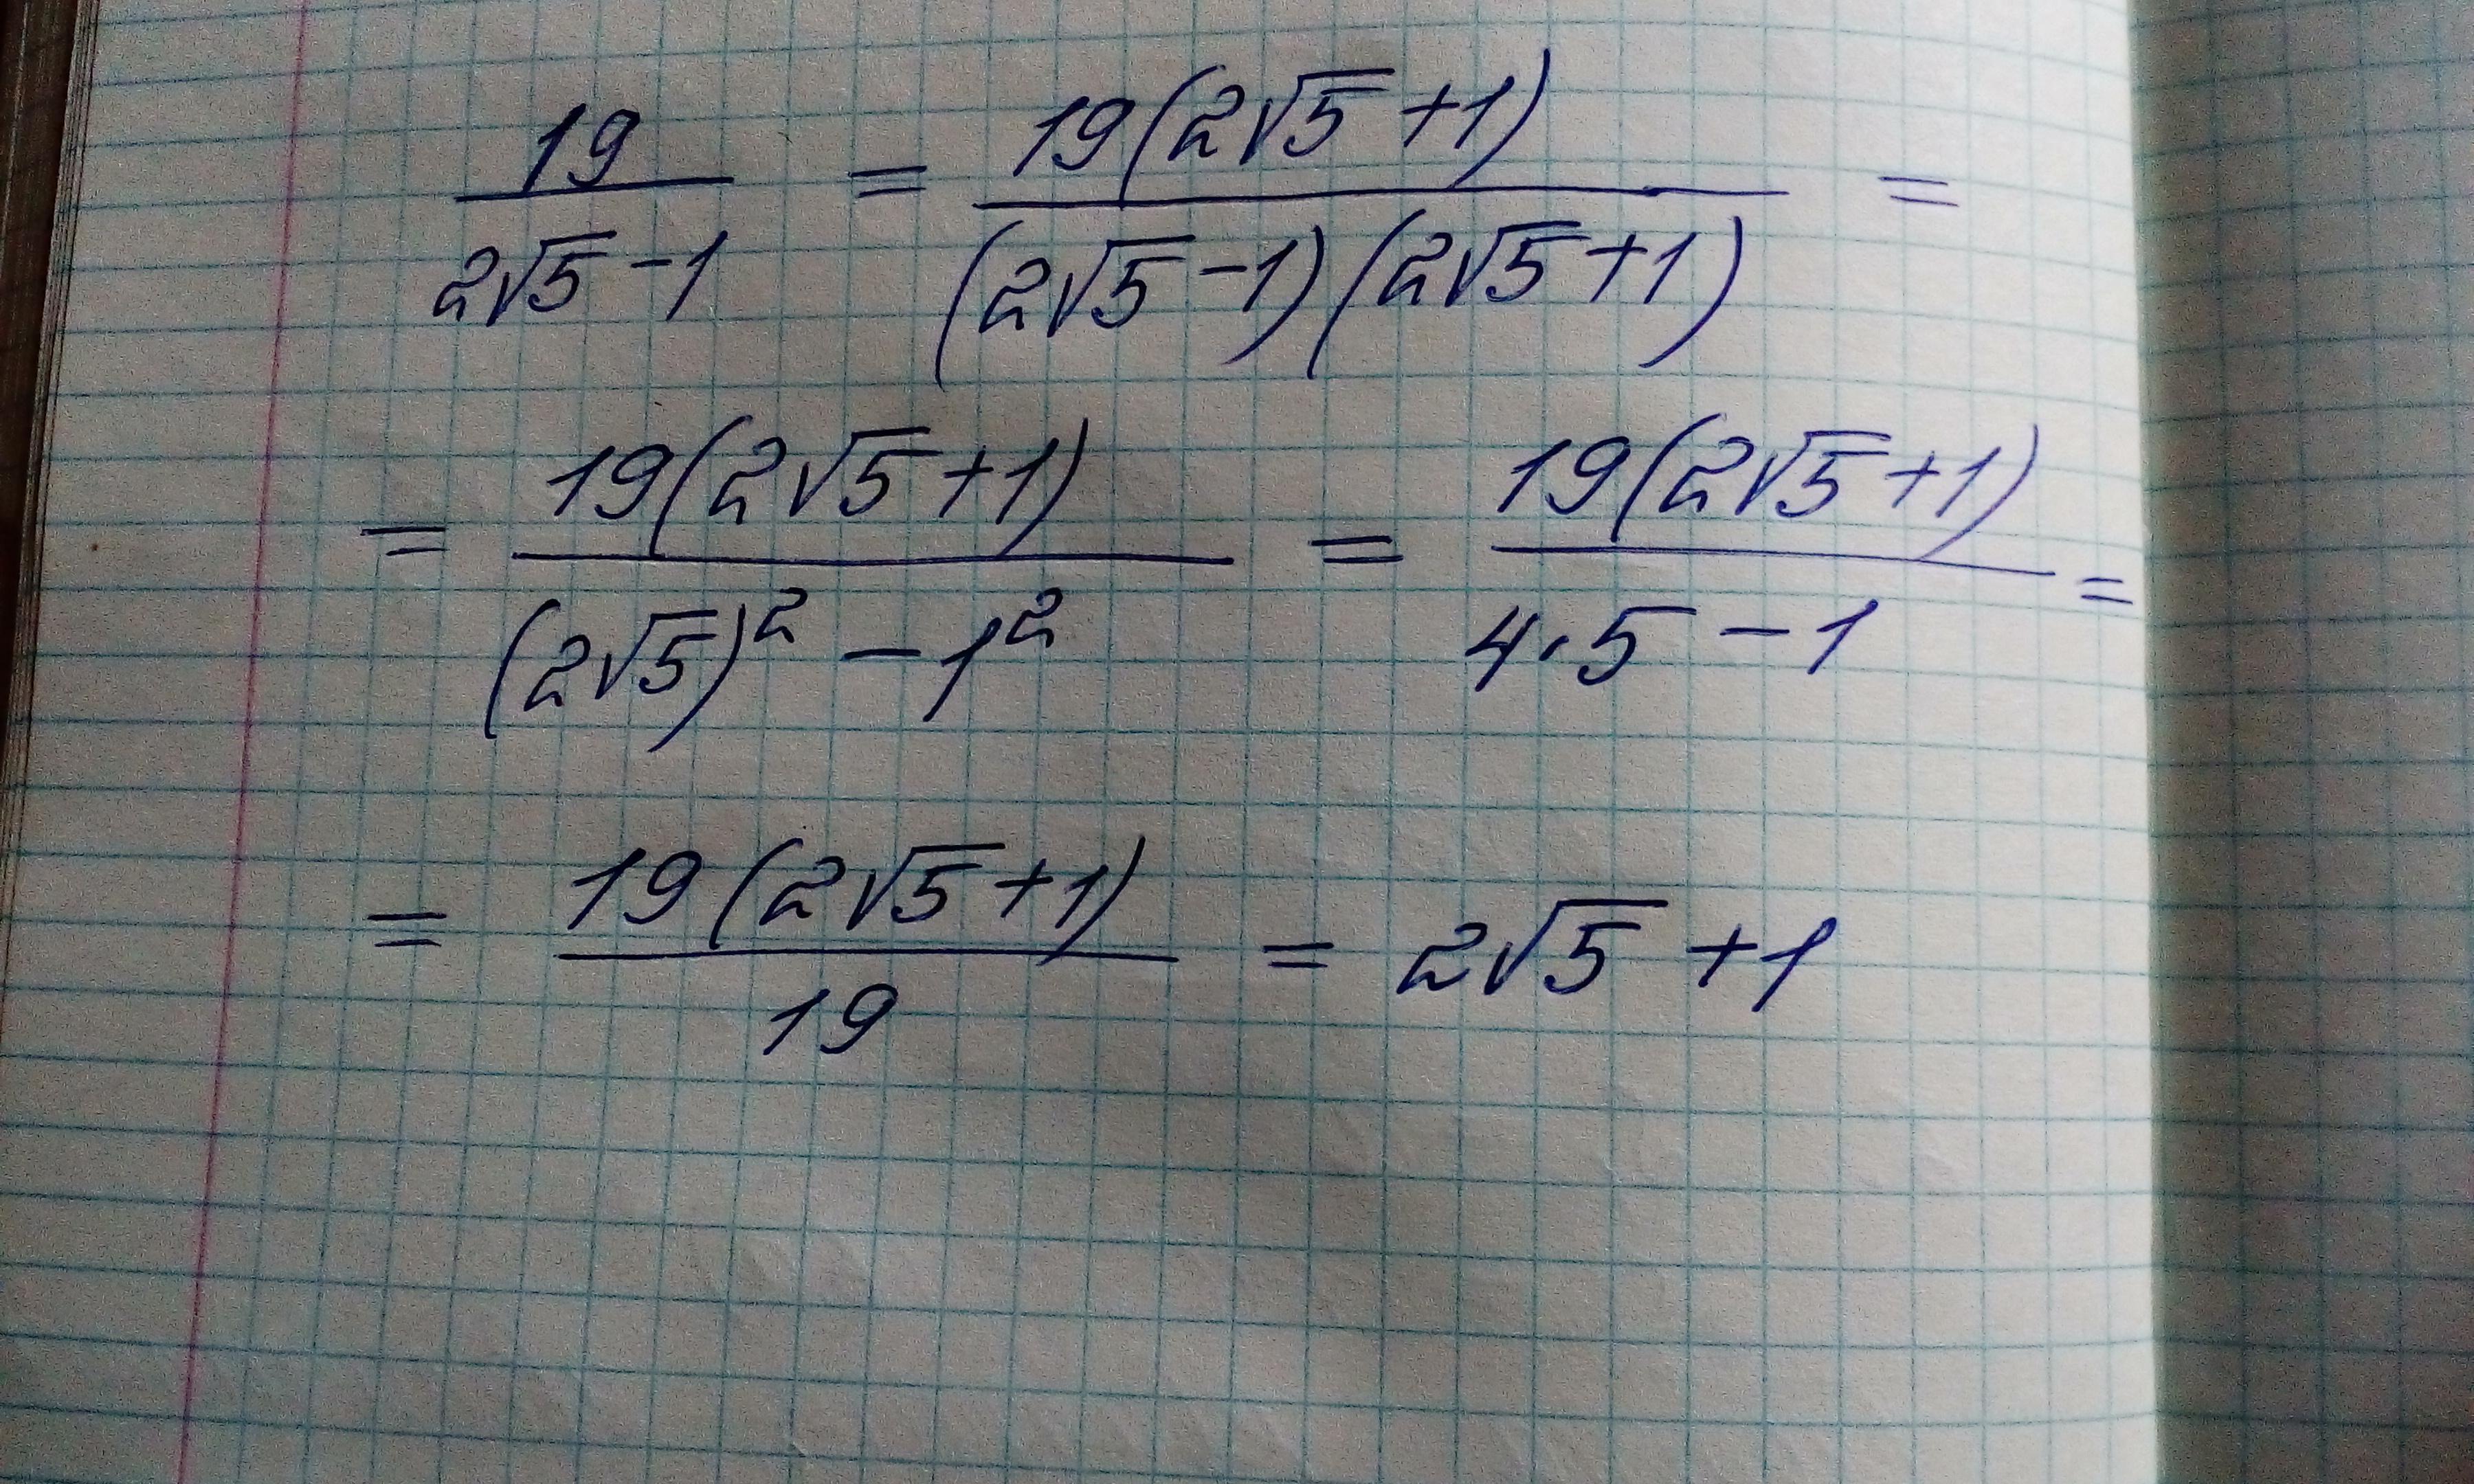 19/(2√5 - 1) = 19(2√5 + 1)/((2√5 - 1)(2√5 + 1)) =
= 19(2√5 + 1)/((2√5)² - 1²) = 19(2√5 + 1)/(4·5 - 1) =
= 19(2√5 + 1)/19 = 2√5 + 1